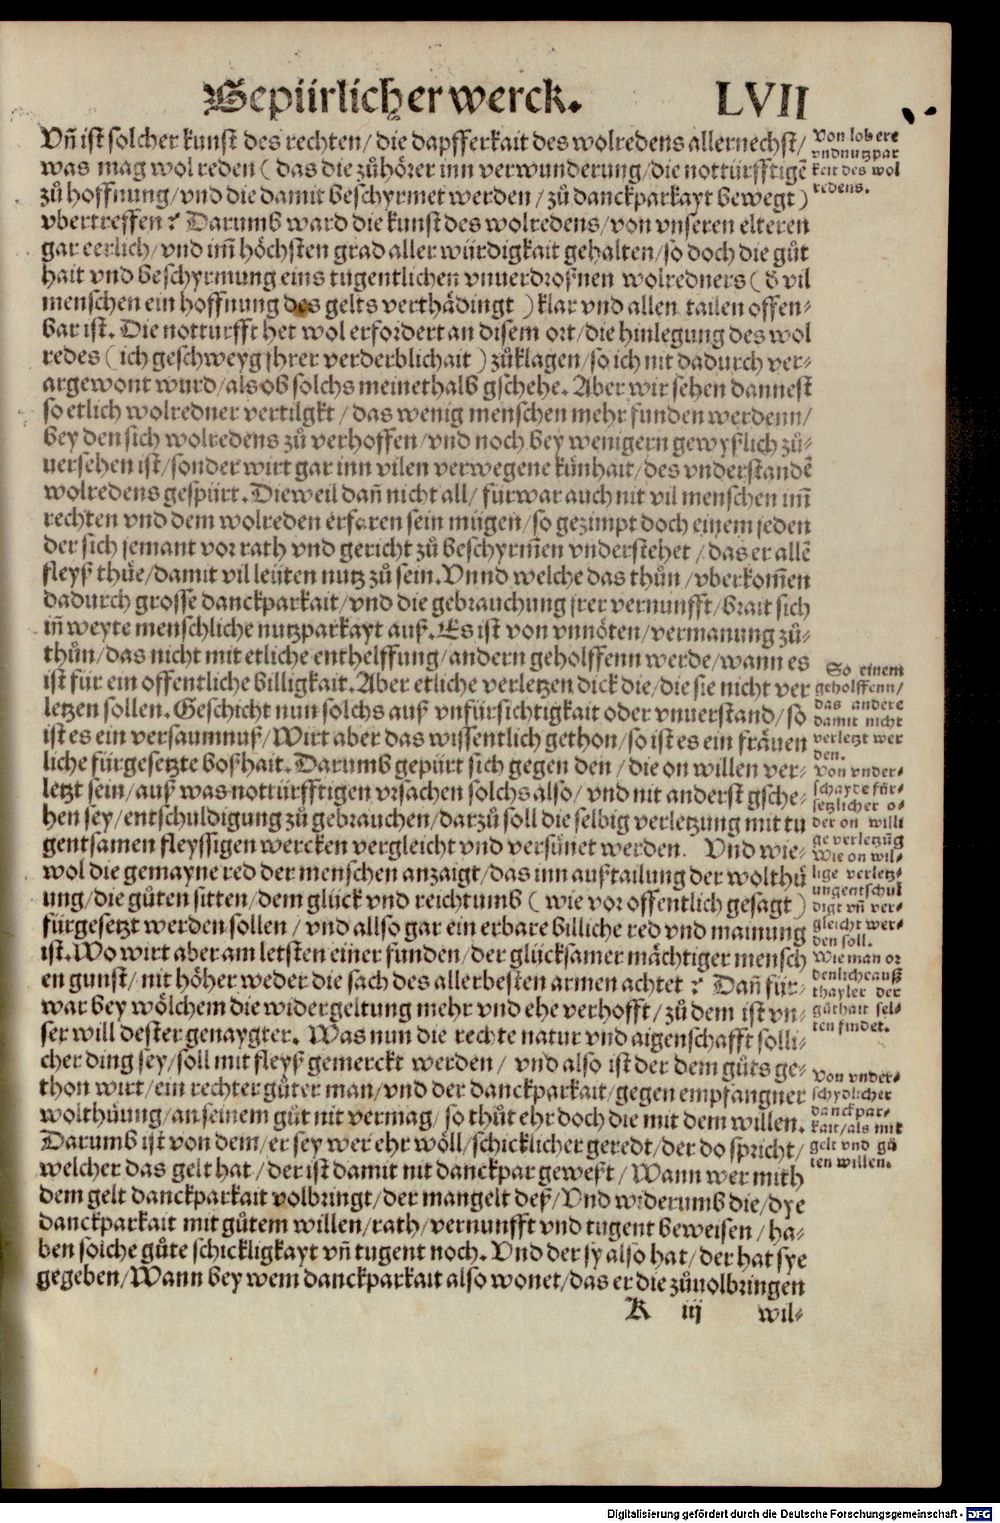 Gepürlicher werck. LVII
Vñ ist solcher kunst des rechten/ die dapfferkait des wolredens allernechst/
was mag wol reden ( das die zůhörer inn verwunderung/ die nottürfftigẽ
zů hoffnung/ vnd die damit beschyrmet werden / zů danckparkayt bewegt )
vbertreffen? Darumb ward die kunst des wolredens/ von vnseren elteren
gar eerlich/ vnd im̃ höchsten grad aller würdigkait gehalten/ so doch die gůt
hait vnd beschyrmung eins tugentlichen vnuerdroßnen wolredners ( d vil
menschen ein hoffnung des gelts verthädingt ) klar vnd allen tailen offen-
bar ist. Die notturfft het wol erfordert an disem ort/ die hinlegung des wol
redes ( ich geschweyg jhrer verderblichait ) zůklagen/ so ich nit dadurch ver-
argewont wurd/ als ob solchs meinethalb gschehe. Aber wir sehen dannest
so etlich wolredner vertilgkt / das wenig menschen mehr funden werdenn/
bey den sich wolredens zů verhoffen/ vnd noch bey wenigern gewyßlich zů-
uersehen ist/ sonder wirt gar inn vilen verwegene künhait/ des vnderstandẽ
wolredens gespürt. Dieweil dañ nicht all/ fürwar auch nit vil menschen im̃
rechten vnd dem wolreden erfaren sein mügen/ so gezimpt doch einem jeden
der sich jemant vor rath vnd gericht zů beschyrmẽn vnderstehet / das er allẽ
fleyß thüe/ damit vil leüten nutz zů sein. Vnnd welche das thůn / vberkom̃en
dadurch grosse danckparkait/ vnd die gebrauchung jrer vernunfft/ brait sich
iñ weyte menschliche nutzparkayt auß. Es ist von vnnöten/ vermanung zů-
thůn/ das nicht mit etliche enthelffung/ andern geholffenn werde/ wann es
ist für ein offentliche billigkait. Aber etliche verletzen dick die/ die sie nicht ver
letzen sollen. Geschicht nun solchs auß vnfürsichtigkait oder vnuerstand/ so
ist es ein versaumnuß/ Wirt aber das wissentlich gethon/ so ist es ein fräuen
liche fürgesetzte boßhait. Darumb gepürt sich gegen den / die on willen ver-
letzt sein/ auß was nottürfftigen vrsachen solchs also/ vnd nit anderst gsche-
hen sey/ entschuldigung zů gebrauchen/ darzů soll die selbig verletzung mit tu
gentsamen fleyssigen wercken vergleicht vnd versünet werden. Vnd wie-
wol die gemayne red der menschen anzaigt/ das inn außtailung der wolthů
ung/ die gůten sitten/ dem glück vnd reichtumb ( wie vor offentlich gesagt )
fürgesetzt werden sollen / vnd allso gar ein erbare billiche red vnd mainung
ist. Wo wirt aber am letsten einer funden/ der glücksamer mächtiger mensch
en gunst/ nit höher weder die sach des allerbesten armen achtet ? Dañ für-
war bey wölchem die widergeltung mehr vnd ehe verhofft/ zů dem ist vn-
ser will dester genaygter. Was nun die rechte natur vnd aigenschafft solli-
cher ding sey/ soll mit fleyß gemerckt werden / vnd also ist der dem gůts ge-
thon wirt/ ein rechter gůter man/ vnd der danckparkait/ gegen empfangner
wolthůung/ an seinem gůt nit vermag/ so thůt ehr doch die mit dem willen.
Darumb ist von dem/ er sey wer ehr wöll/ schicklicher geredt/ der do spricht/
welcher das gelt hat / der ist damit nit danckpar geweßt / Wann wer mith
dem gelt danckparkait volbringt/ der mangelt deß/ Vnd widerumb die/ dye
danckparkait mit gůtem willen/ rath/ vernunfft vnd tugent beweisen / ha-
ben solche gůte schickligkayt vñ tugent noch. Vnd der sy also hat/ der hat sye
gegeben/ Wann bey wem danckparkait also wonet/ das er die zůuolbringen
K iij wil-
Von lob ere
vnd nutzpar
keit des wol
redens.
So einem
geholffenn/
das andere
damit nicht
verletzt wer
den.
Von vnder-
schayde für-
setzlicher o-
der on willi
ge verletzũg
Wie on wil-
lige verletz-
ung entschul
digt vñ ver-
gleicht wer-
den soll.
Wie man or
denliche auß
thayler der
gůthait sel-
ten findet.
Von vnder-
schydlicher
danckpar-
kait/ als mit
gelt vnd gů
ten willen.
Digitalisierung gefördert durch die Deutsche Forschungsgemeinschaft - DFG